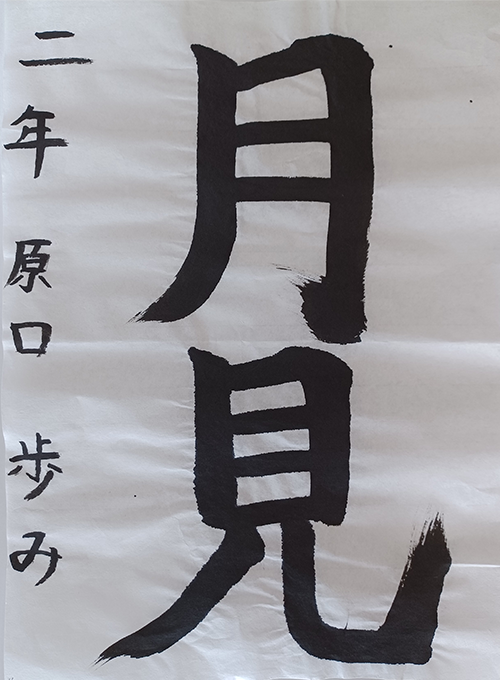 月見
二年 原口 歩み